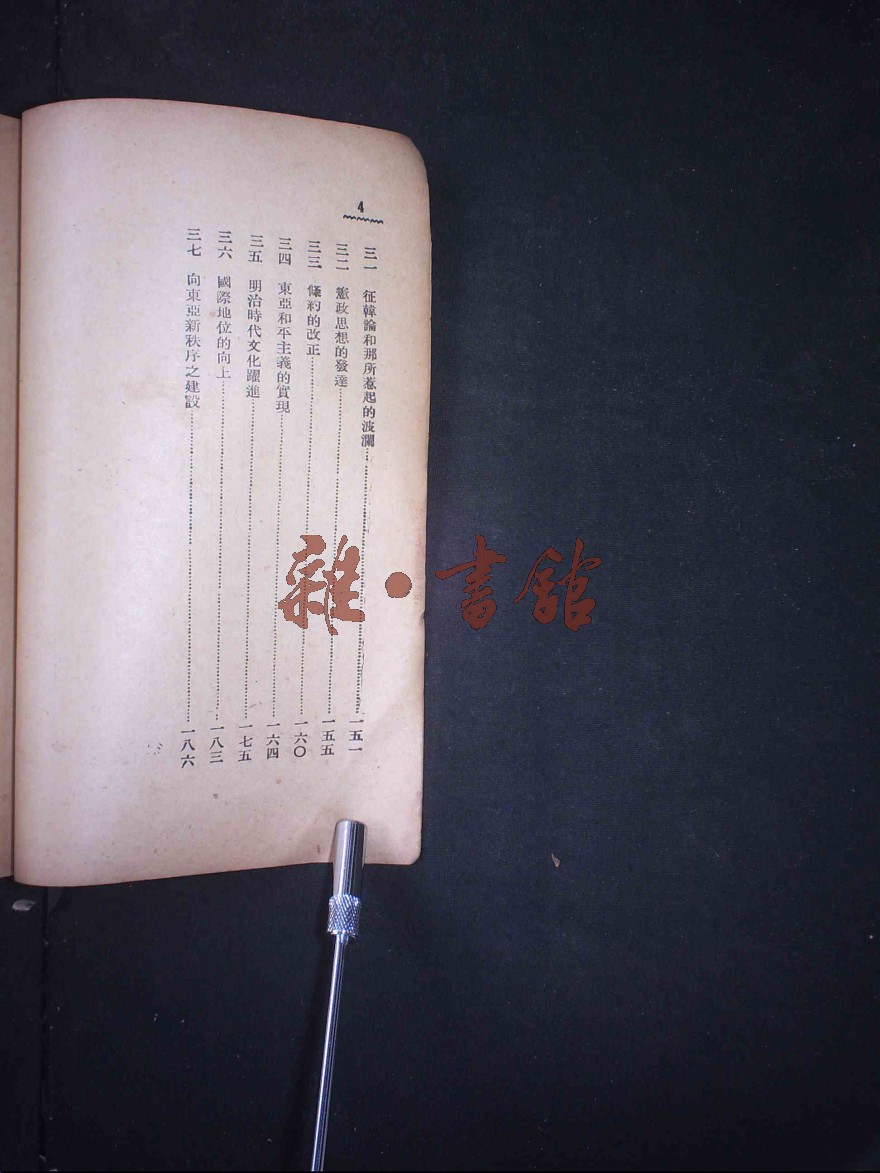 4
三一 征韓論和那所惹起的波瀾……一五一
三二 憲政思想的發達……一五五
三三 條約的改正……一六〇
三四 東亞和平主義的實現……一六四
三五 明治時代文化躍進……一七五
三六 國際地位的向上……一八三
三七 向東亞新秩序之建設……一八六
雜·書館